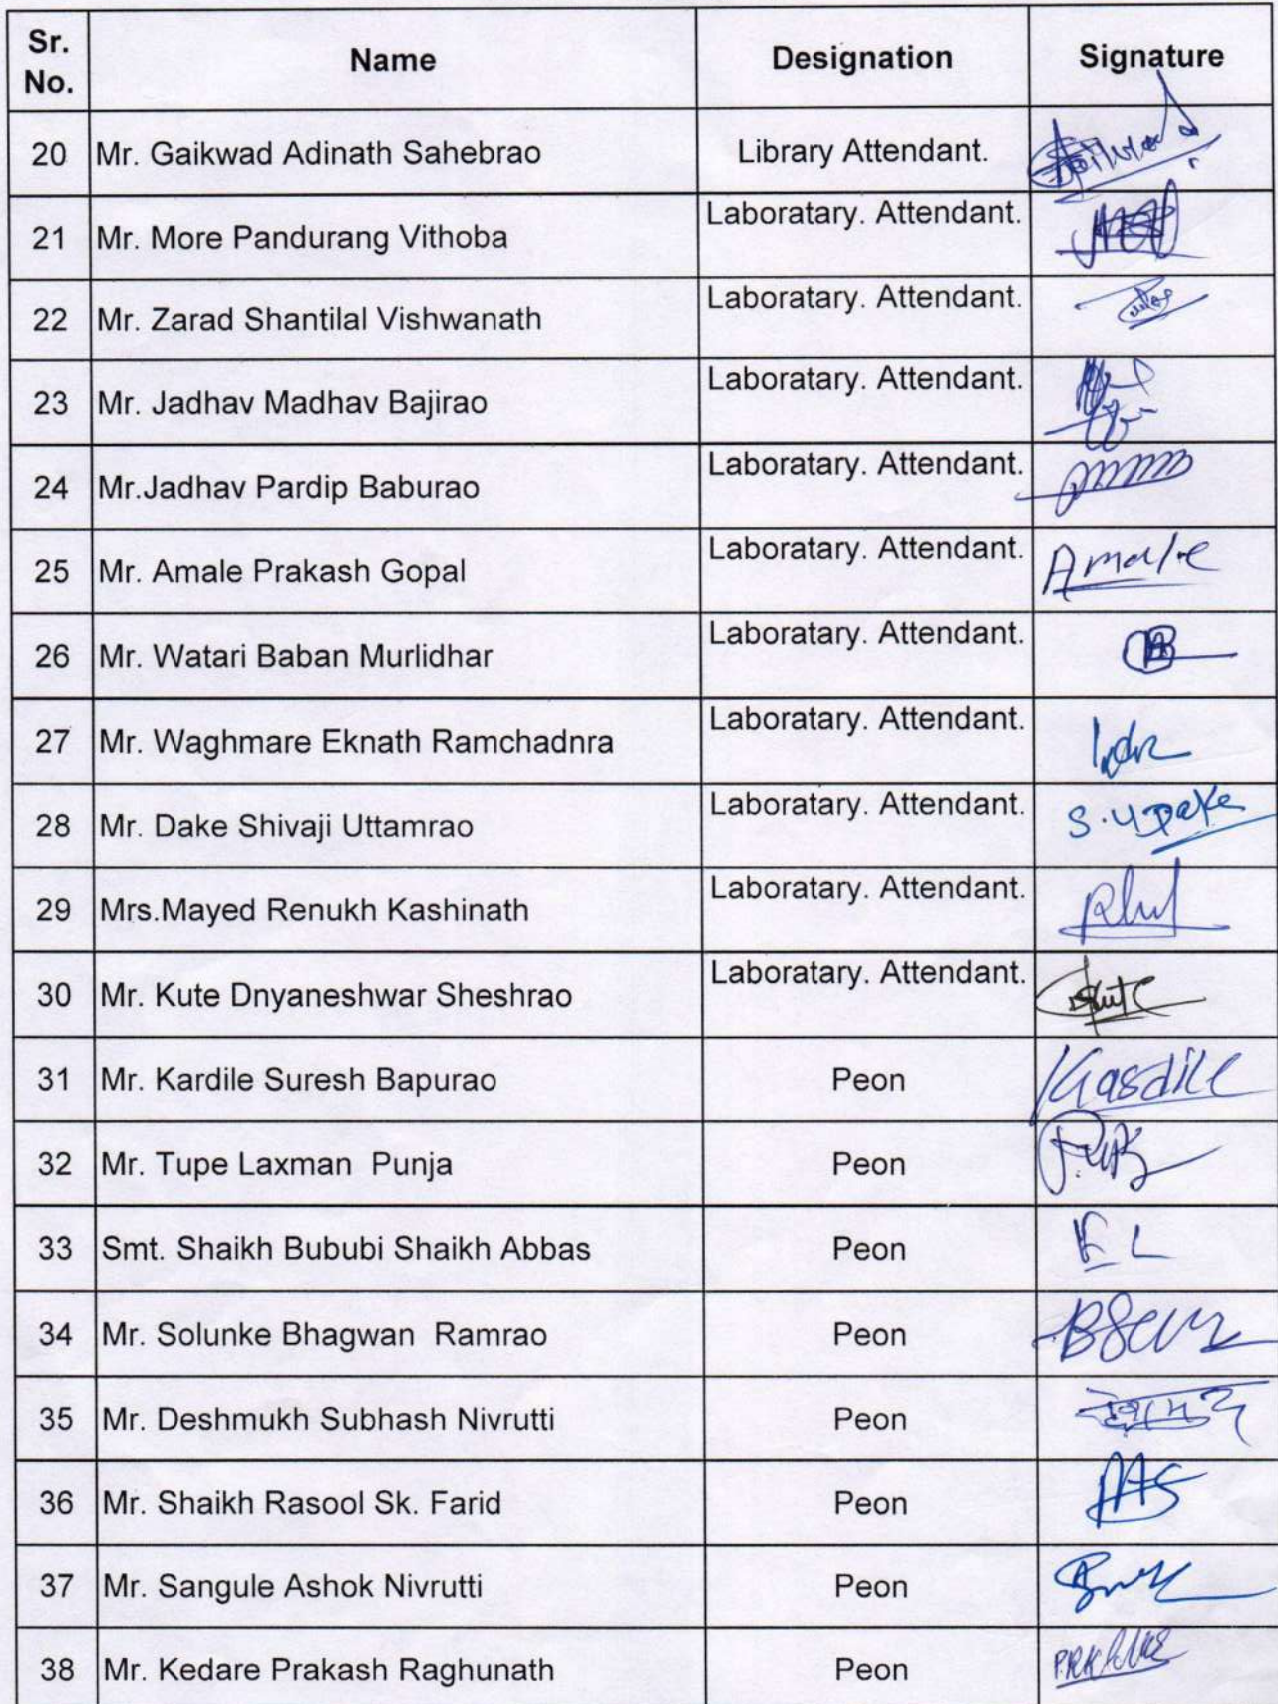 Sr. No. Name Designation Signature
20 Mr. Gaikwad Adinath Sahebrao Library Attendant.
21 Mr. More Pandurang Vithoba Laboratary. Attendant.
22 Mr. Zarad Shantilal Vishwanath Laboratary. Attendant.
23 Mr. Jadhav Madhav Bajirao Laboratary. Attendant.
24 Mr.Jadhav Pardip Baburao Laboratary. Attendant.
25 Mr. Amale Prakash Gopal Laboratary. Attendant. Amale
26 Mr. Watari Baban Murlidhar Laboratary. Attendant.
27 Mr. Waghmare Eknath Ramchadnra Laboratary. Attendant.
28 Mr. Dake Shivaji Uttamrao Laboratary. Attendant. S.U Dake
29 Mrs.Mayed Renukh Kashinath Laboratary. Attendant.
30 Mr. Kute Dnyaneshwar Sheshrao Laboratary. Attendant.
31 Mr. Kardile Suresh Bapurao Peon Kasdile
32 Mr. Tupe Laxman Punja Peon
33 Smt. Shaikh Bububi Shaikh Abbas Peon
34 Mr. Solunke Bhagwan Ramrao Peon
35 Mr. Deshmukh Subhash Nivrutti Peon
36 Mr. Shaikh Rasool Sk. Farid Peon
37 Mr. Sangule Ashok Nivrutti Peon
38 Mr. Kedare Prakash Raghunath Peon